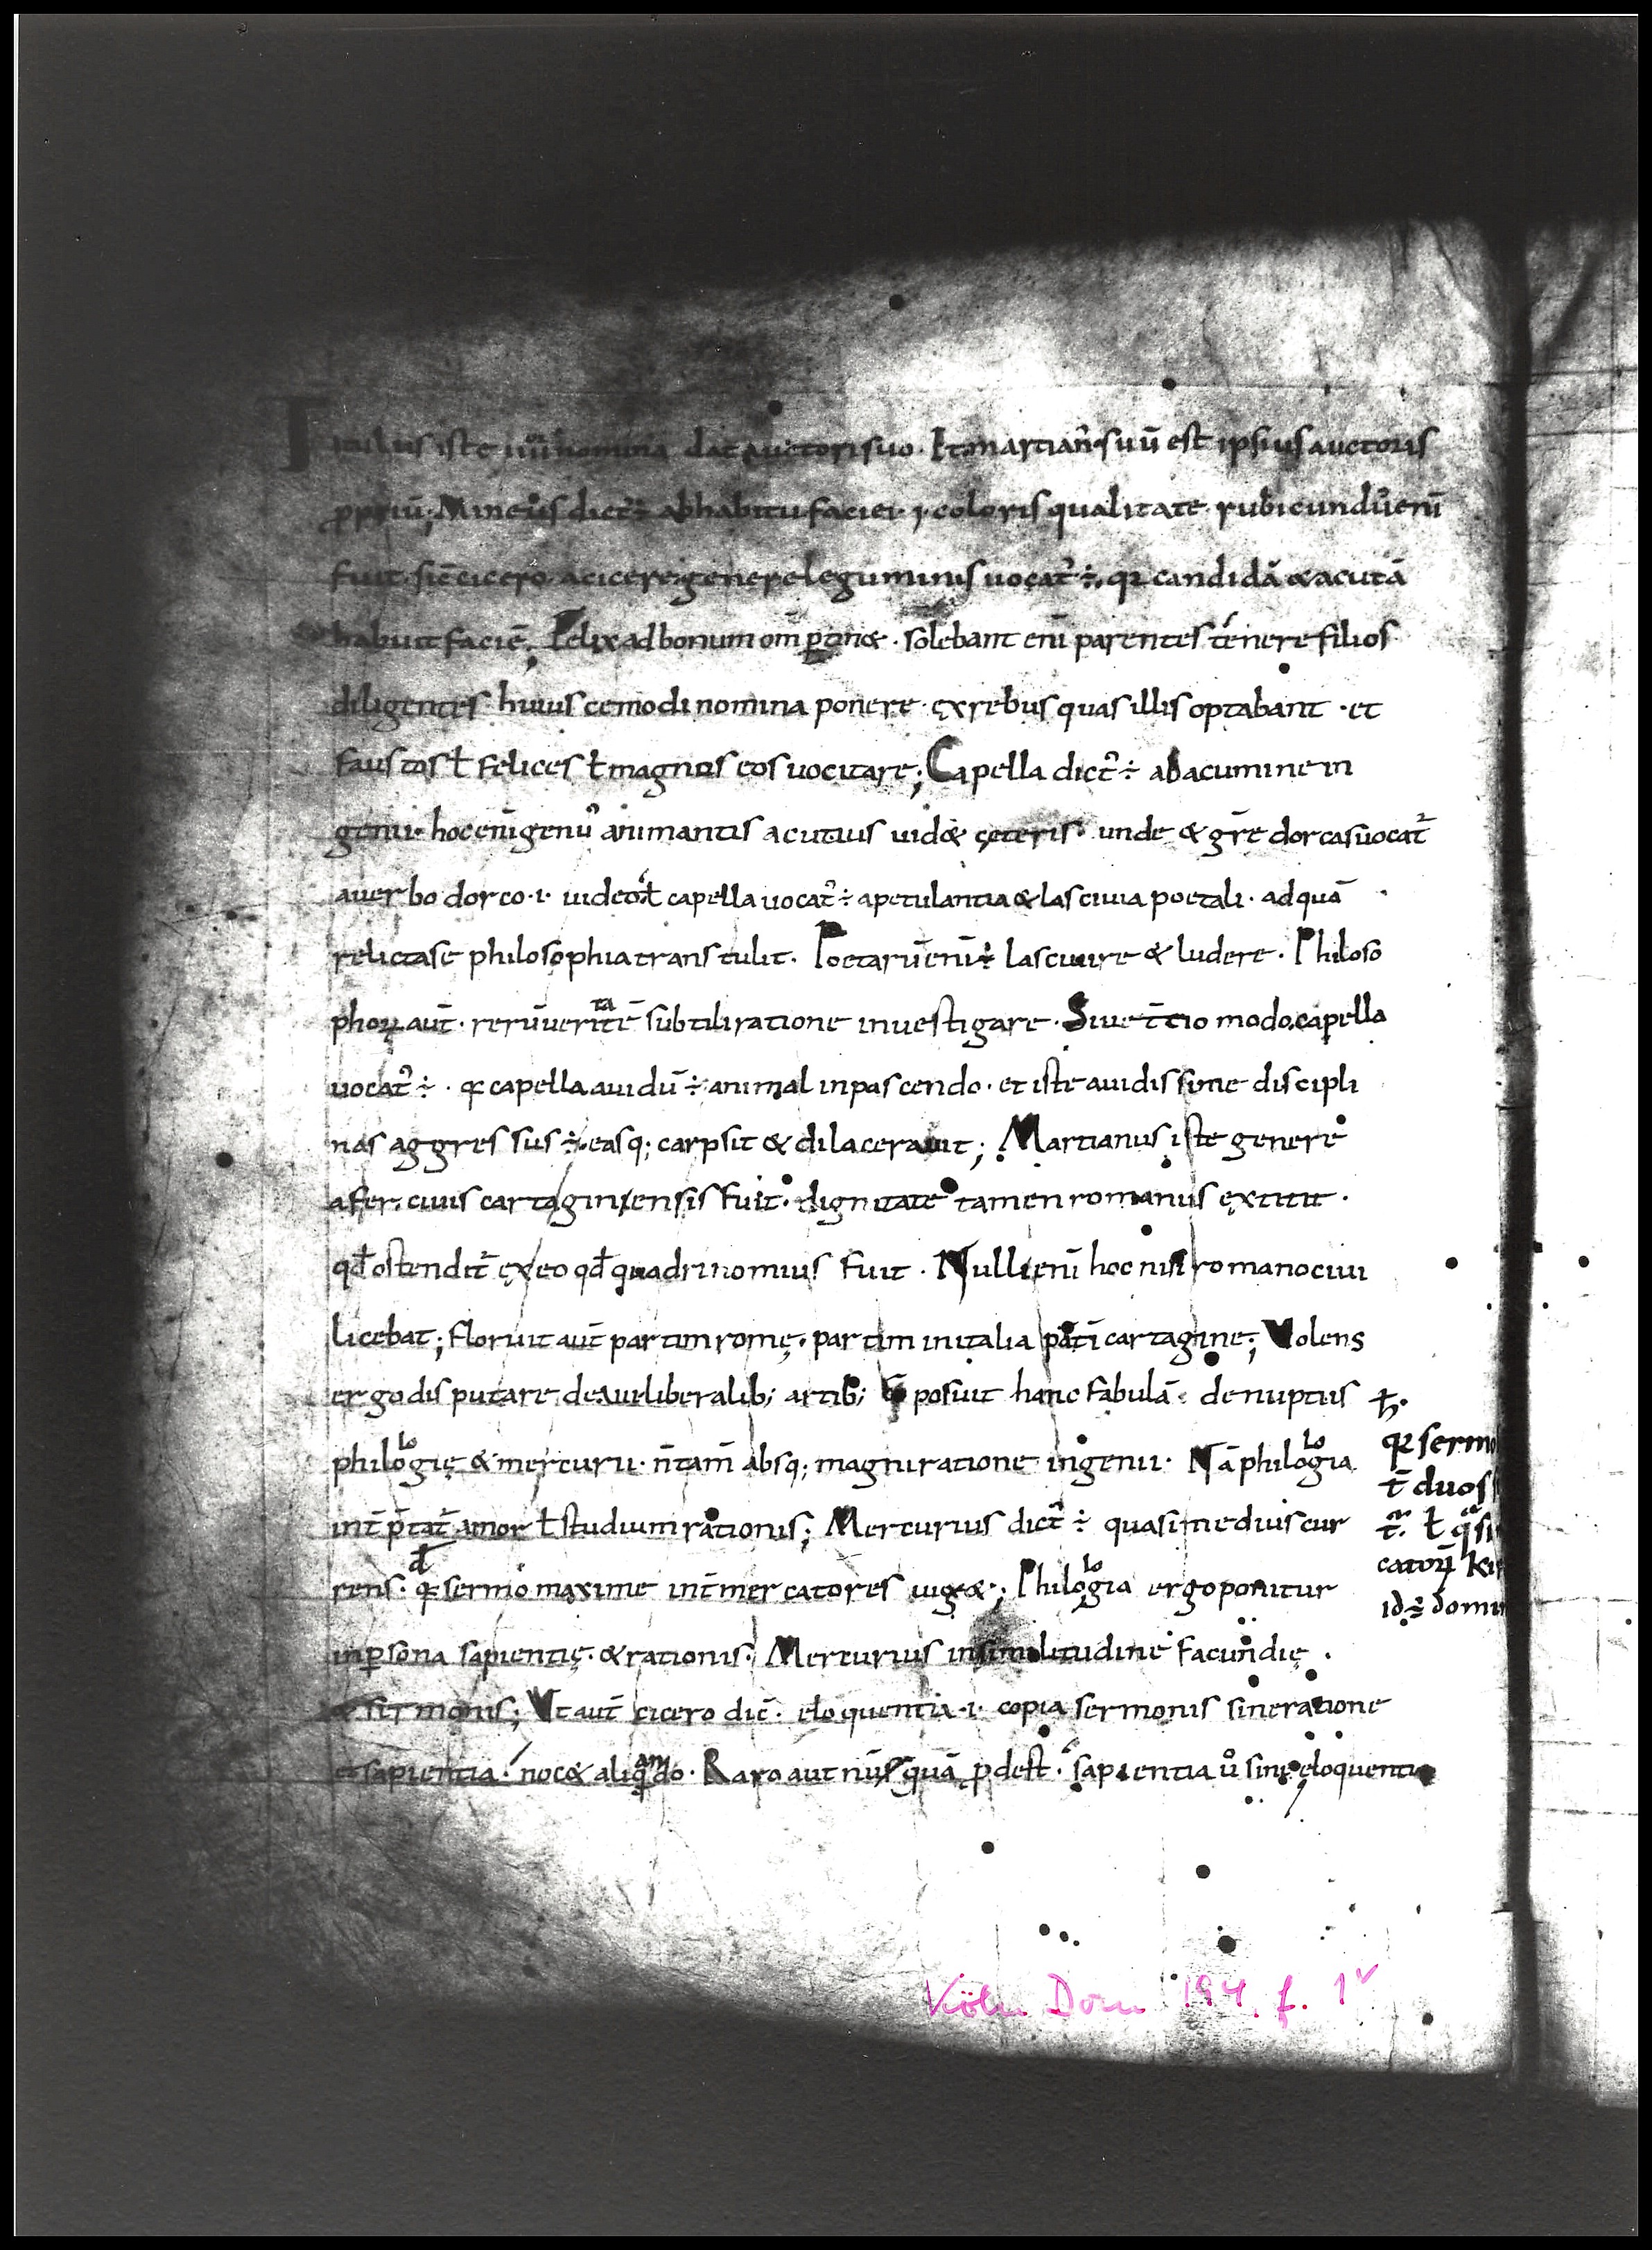 Titulus iste iiii nomina dat auctori suo. Et martian᷒ suū est ipsius auctoris
ꝓpriū; Mineus dict᷒ ÷ ab habitu faciei .i. coloris qualitate. rubicund᷒ enī
fuit. sic̄ cicero. a cicere genere leguminis uocat᷒ ÷, qꝛ candidā & acutā
habuit faciē; Felix ad bonum om̄ ꝑtin&. Solebant enī parentes tenere filios
diligentes huiuscemodi nomina ponere. ęx rebus quas illis optabant. et
faustos ł felices ł magnos eos uocitare; Capella dict᷒ ÷ ab acumine in
genii. hoc enī genus animantis acutius uid& çęteris. unde & gr̄e dorcas uocat᷑
a uerbo dorco .i. uideo. ł capella uocat᷒ ÷ a petulantia & lasciuia poetali. ad quā
relicta se philosophia transtulit. Poetarū enī ÷ lasciuire & ludere. Philoso
phoꝝ aut̄. rerū veritatē subtili ratione inuestigare. Siue t̄tio modo capella
uocat᷒ ÷. qꝛ capella auidū ÷ animal in pascendo. et iste auidissime discipli
nas aggressus ÷. easq; carpsit & dilacerauit; Martianus iste genere
afer. ciuis cartaginiensis fuit. dignitate tamen romanus ęxtitit.
qđ ostendit᷑ ęx eo qđ quadrinomius fuit. Nulli enī hoc nisi romano ciui
licebat; floruit aut̄ partim romę. partim in italia patī cartagine; Volens
ergo disputare de .vii. liberalib; artib; posuit hanc fabulā. de nuptiis
philologię & mercurii. n̄ tam̄ absq; magni ratione ingenii. Nā philologia
int̄ p̄tat᷑ amor ł studium rationis; Mercurius dict᷒ ÷ quasi medius cur
rens. qꝛ sermo maxime int̄ mercatores uig&; Philologia ergo ponitur
in ꝑsona sapientię. & rationis. Mercurius in similitudine facundię.
& sermonis; Vt aut̄ cicero dic̄. eloquentia .i. copia sermonis sine ratione
et sapientia. noc& aliquando. Raro aut nūquā ꝓdest. sapientia ů sine eloquentia
ħ.
qꝛ sermo
t̄ duos
catoꝝ ki
id ÷ domi
Köln Dom 194. f. 1v